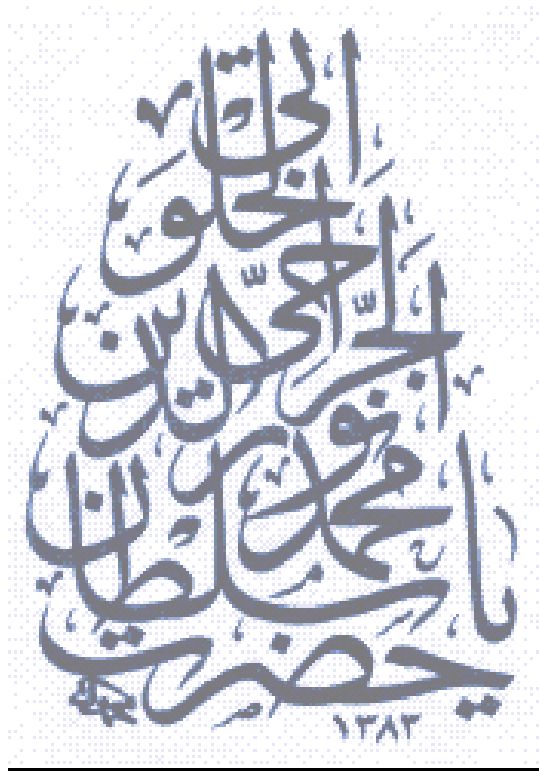 يا حضرت
سلطان
محمد نور الدين
الجراحي
الخلوتي
١٣٨٣